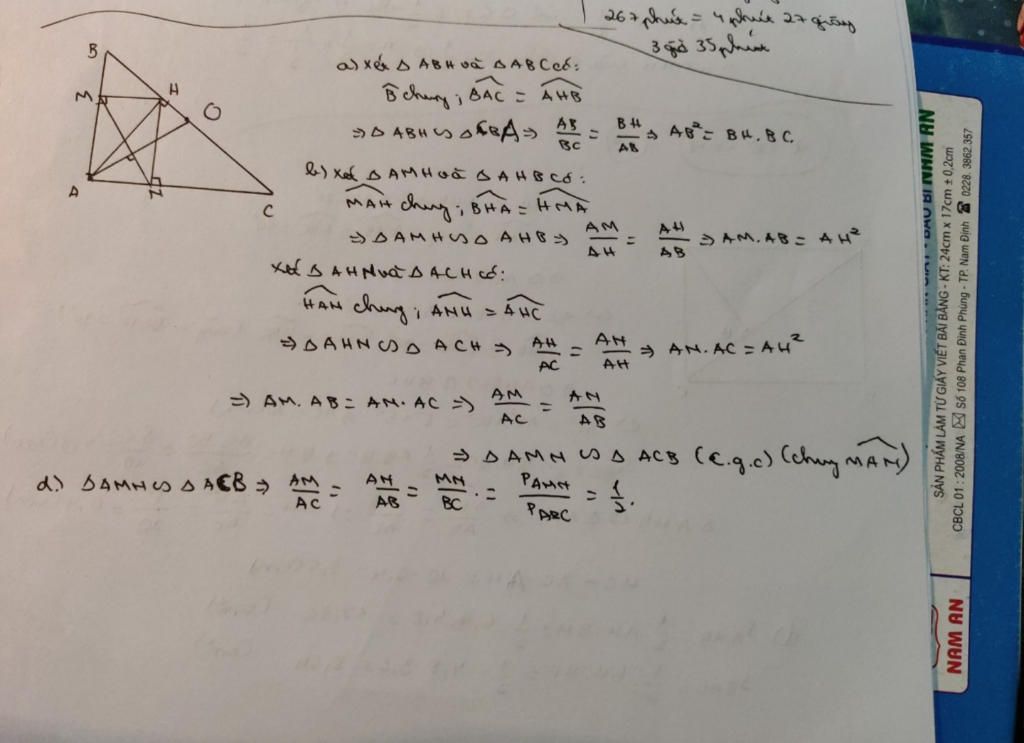 267 phút = 4 phút 27 giây
3 giờ 35 phút
B
M
H
O
A
N
C
a) Xét Δ ABH và Δ ABC có:
B̂ chung; BAC^ = AHB^
⇒ Δ ABH ∽ Δ CBA ⇒ AB/BC = BH/AB ⇒ AB² = BH.BC.
b) Xét Δ AMH và Δ AHB có:
MAH^ chung; BHA^ = HMA^
⇒ Δ AMH ∽ Δ AHB ⇒ AM/AH = AH/AB ⇒ AM.AB = AH²
Xét Δ AHN và Δ ACH có:
HAN^ chung; ANH^ = AHC^
⇒ Δ AHN ∽ Δ ACH ⇒ AH/AC = AN/AH ⇒ AN.AC = AH²
⇒ AM.AB = AN.AC ⇒ AM/AC = AN/AB
⇒ Δ AMN ∽ Δ ACB (c.g.c) (chung MAN^)
d) Δ AMN ∽ Δ ACB ⇒ AM/AC = AN/AB = MN/BC = P AMN/P ABC = 1/2.
BAO BÌ NAM AN
SẢN PHẨM LÀM TỪ GIẤY VIẾT BÃI BẰNG - KT: 24cm x 17cm ± 0,2cm
CBCL 01 : 2008/NA ✉ Số 108 Phan Đình Phùng - TP. Nam Định ☎ 0228. 3862.357
NAM AN